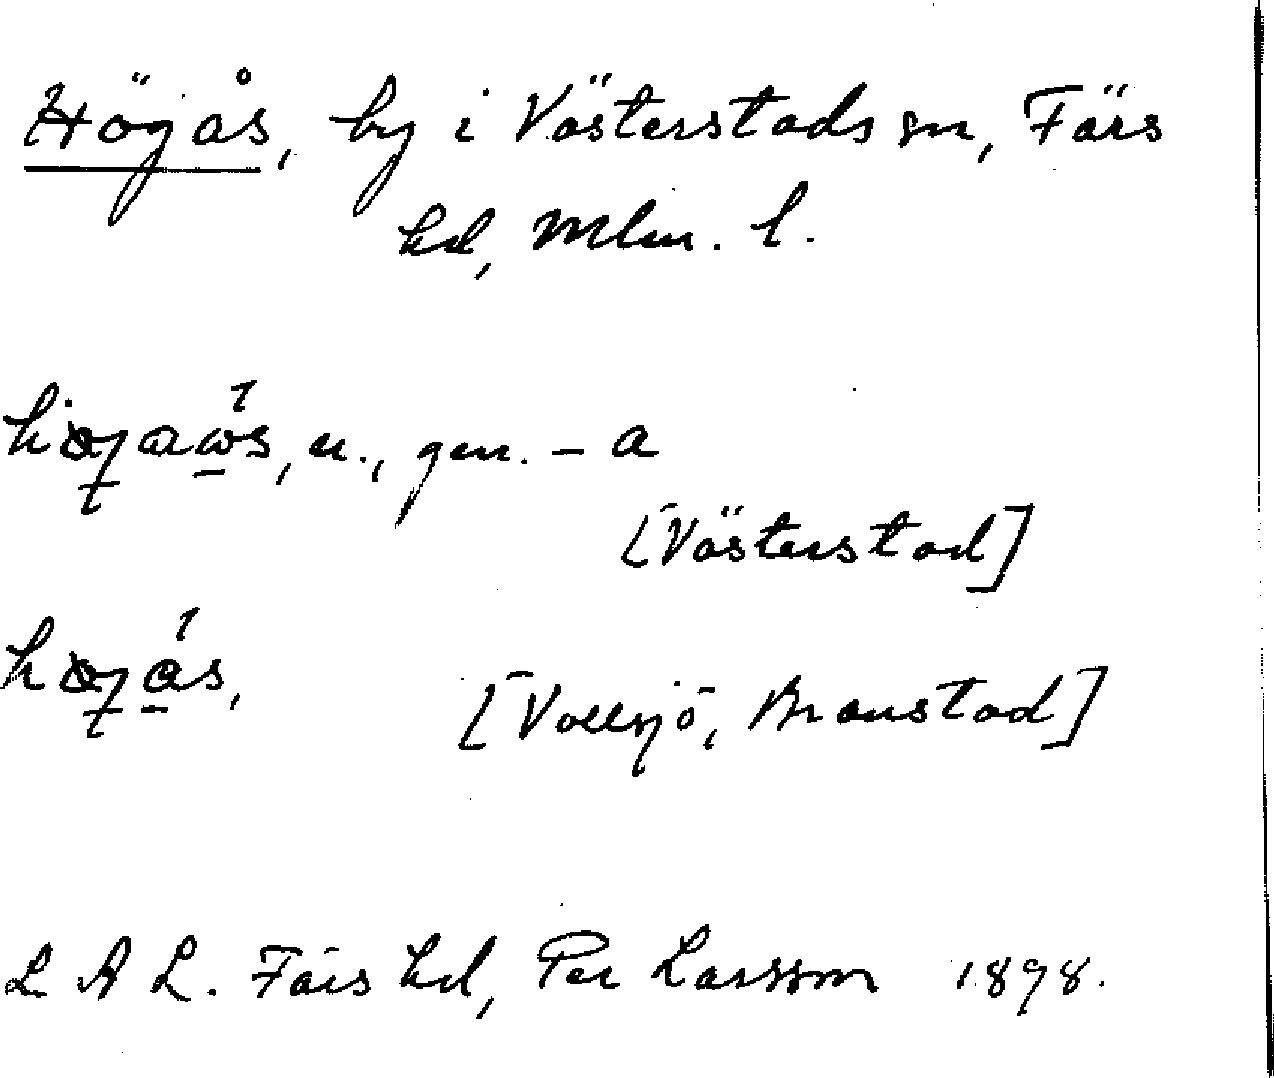 Högås, by i Västerstads sn, Färs
hd, Mlm. l.
n., gen. – a
[Västerstad]
[Vollsjö, Brandstad]
L A L. Färs hd, Per Larsson 1898.